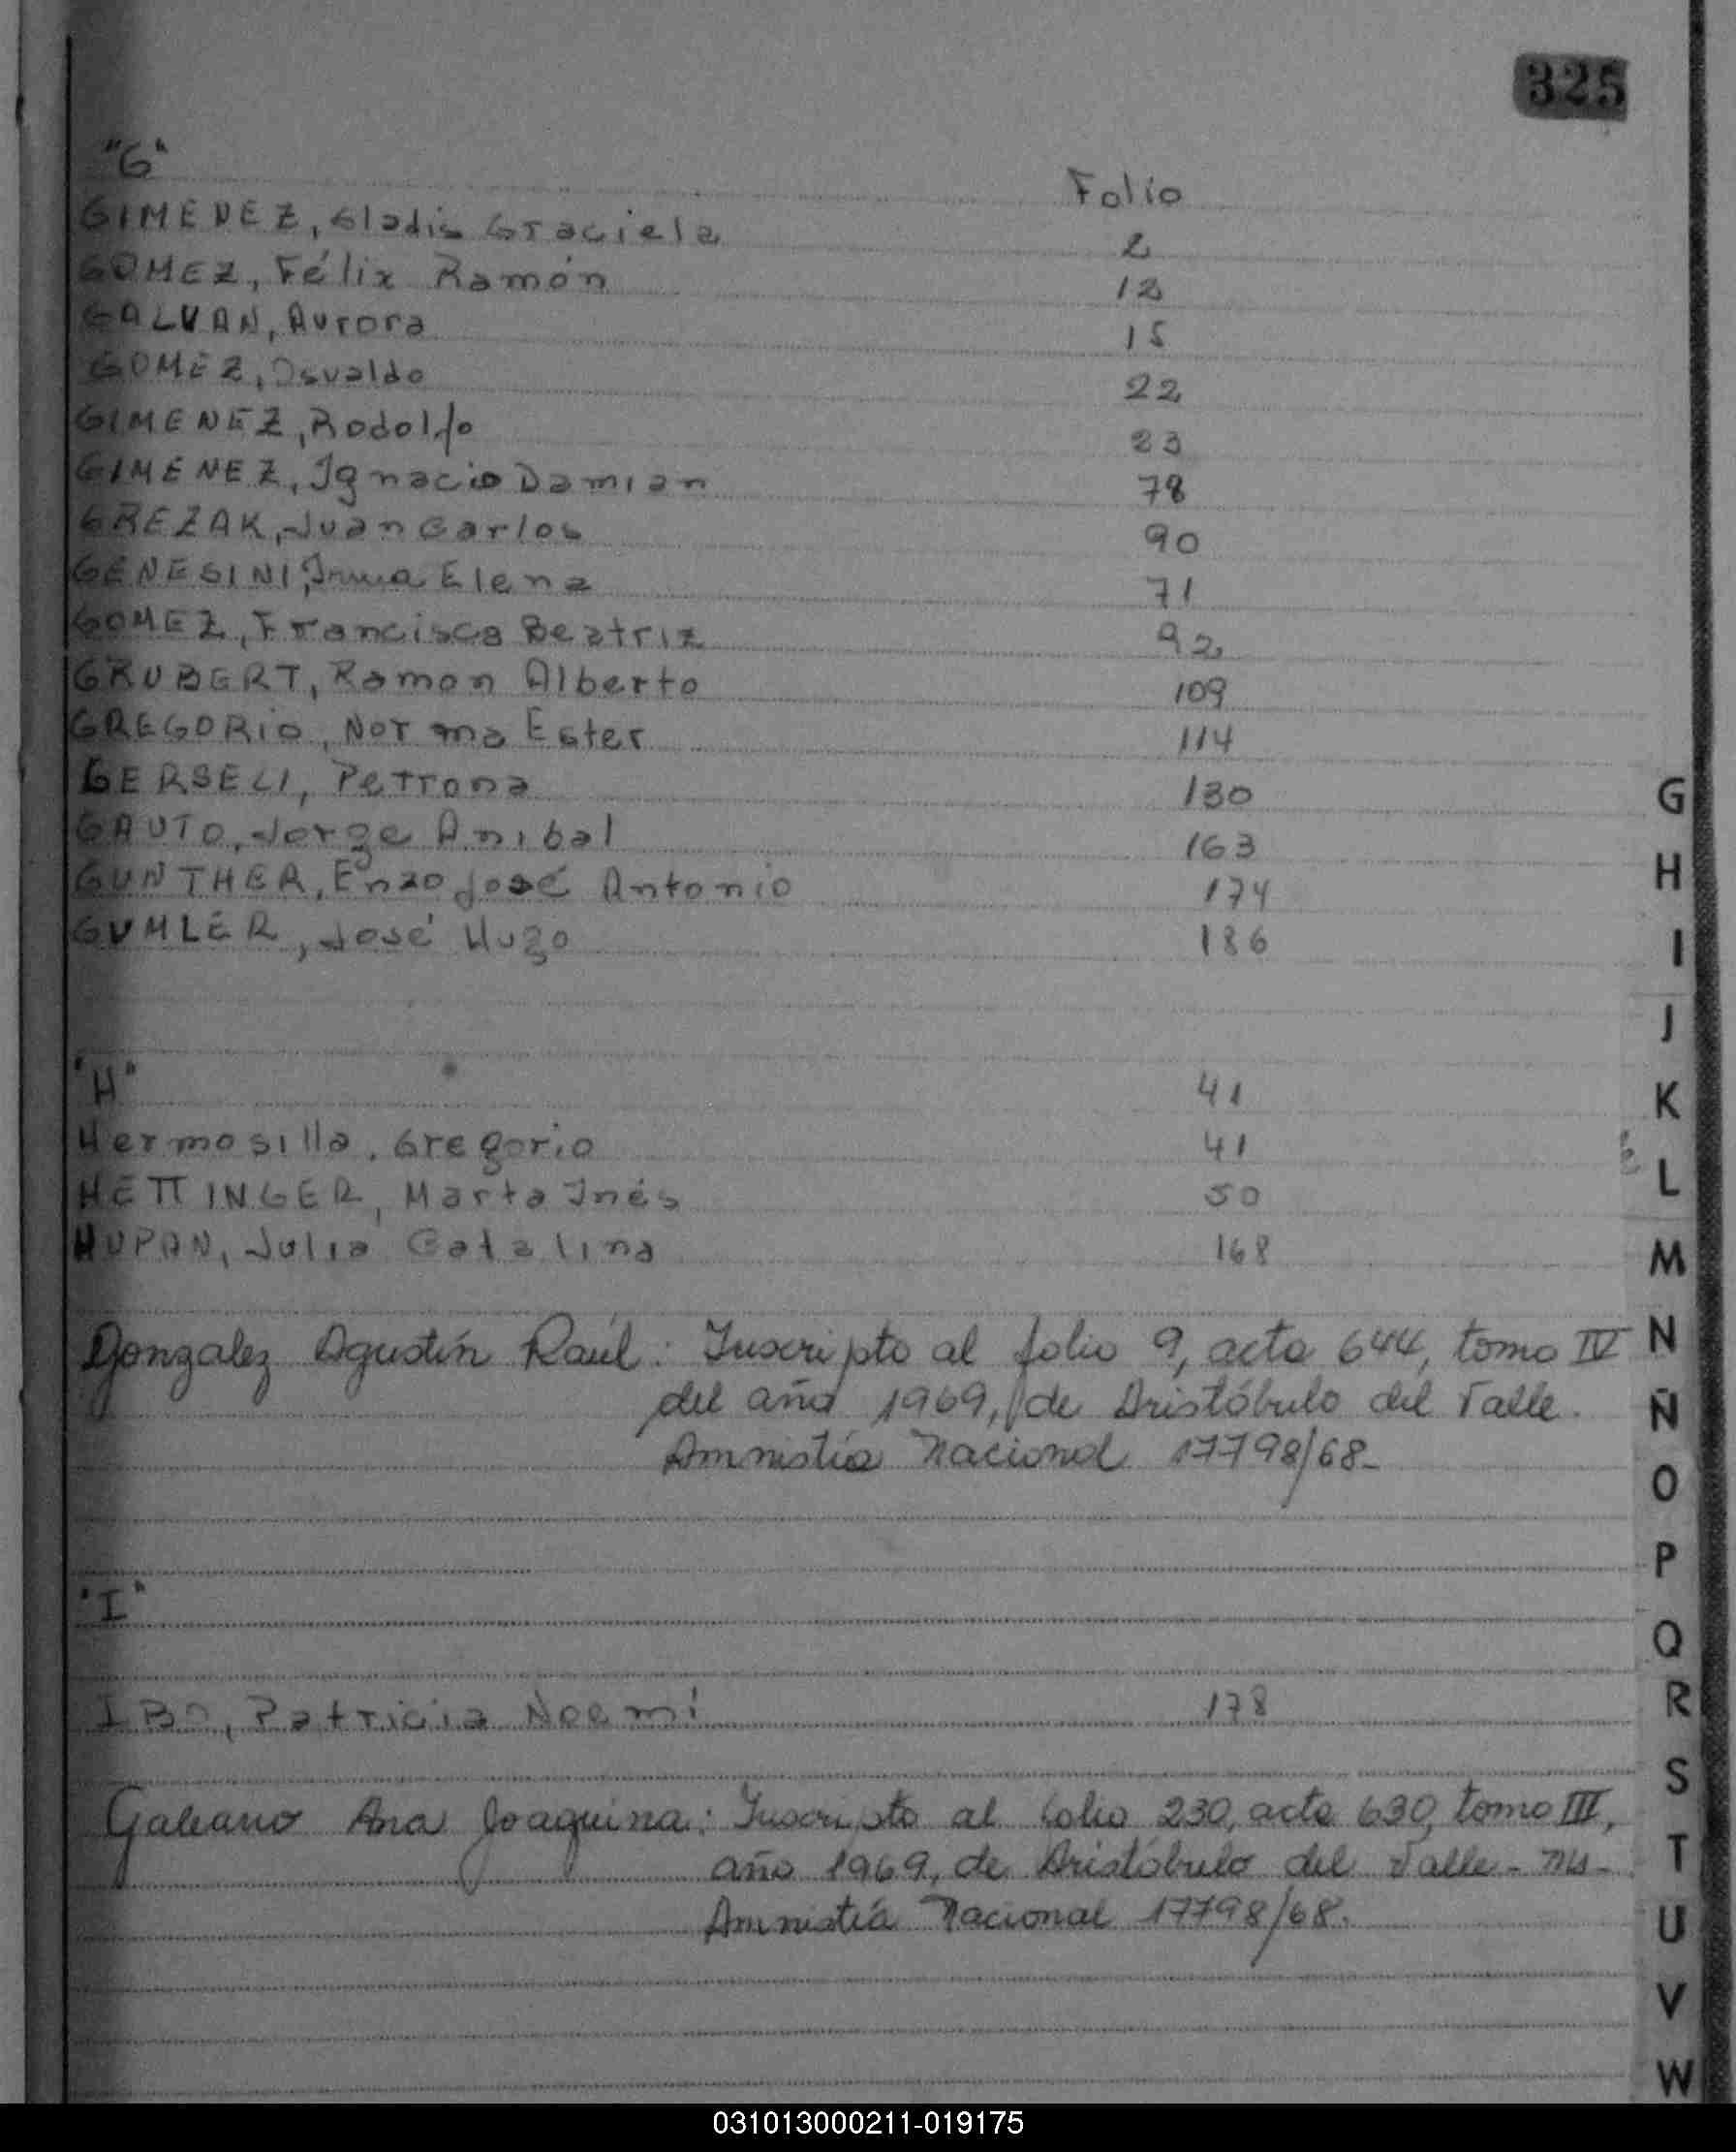 325
"G"
Folio
GIMENEZ, Gladis Graciela 2
GOMEZ, Félix Ramón 12
GALVAN, Aurora 15
GOMEZ, Osvaldo 22
GIMENEZ, Rodolfo 23
GIMENEZ, Ignacio Damian 78
GREZAK, Juan Carlos 90
GENESINI, Irma Elena 71
GOMEZ, Francisca Beatriz 92
GRUBERT, Ramon Alberto 109
GREGORIO, Norma Ester 114
GERSELI, Petrona 130
GAUTO, Jorge Anibal 163
GUNTHER, Enzo José Antonio 174
GUMLER, José Hugo 186
"H" 41
Hermosilla, Gregorio 41
HETTINGER, Marta Inés 50
HUPAN, Julia Catalina 168
Gonzalez Agustín Raúl: Inscripto al folio 9, acta 644, tomo IV
del año 1969, de Aristóbulo del Valle.
Amnistía Nacional 17798/68-
"I"
IBO, Patricia Noemí 178
Galeano Ana Joaquina: Inscripta al folio 230, acta 630, tomo III,
año 1969, de Aristóbulo del Valle-
Amnistía Nacional 17798/68.
G
H
I
J
K
L
M
N
Ñ
O
P
Q
R
S
T
U
V
W
031013000211-019175